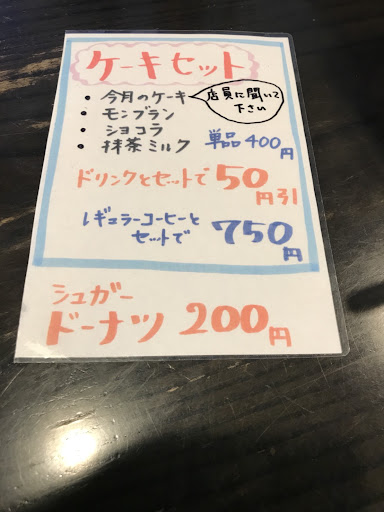 ケーキセット
• 今月のケーキ 店員に聞いて下さい
• モンブラン
• ショコラ
• 抹茶ミルク 単品400円
ドリンクとセットで50円引
レギュラーコーヒーと
セットで 750円
シュガー
ドーナツ 200円